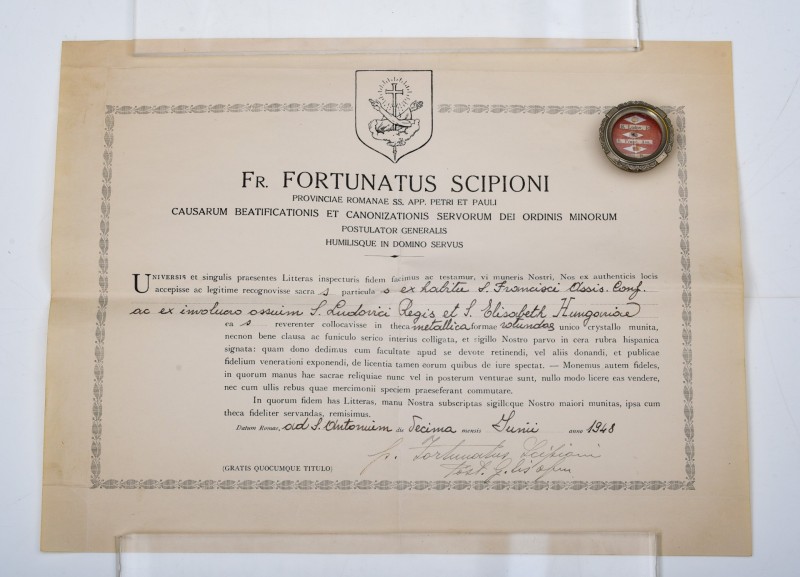 FR. FORTUNATUS SCIPIONI
PROVINCIAE ROMANAE SS. APP. PETRI ET PAULI
CAUSARUM BEATIFICATIONIS ET CANONIZATIONIS SERVORUM DEI ORDINIS MINORUM
POSTULATOR GENERALIS
HUMILISQUE IN DOMINO SERVUS
UNIVERSIS et singulis praesentes Litteras inspecturis fidem facimus ac testamur, vi muneris Nostri, Nos ex authenticis locis
accepisse ac legitime recognovisse sacra s particula s ex habitu S. Francisci Assis. Conf.
ac ex involucro ossium S. Ludovici Regis et S. Elisabeth Hungariae
ea s reverenter collocavisse in theca metallica formae rotundae unico crystallo munita,
necnon bene clausa ac funiculo serico interius colligata, et sigillo Nostro parvo in cera rubra hispanica
signata: quam dono dedimus cum facultate apud se devote retinendi, vel aliis donandi, et publicae
fidelium venerationi exponendi, de licentia tamen eorum quibus de iure spectat. — Monemus autem fideles,
in quorum manus hae sacrae reliquiae nunc vel in posterum venturae sunt, nullo modo licere eas vendere,
nec cum ullis rebus quae mercimonii speciem praeseferant commutare.
In quorum fidem has Litteras, manu Nostra subscriptas sigilloque Nostro maiori munitas, ipsa cum
theca fideliter servandas, remisimus.
Datum Romae, ad S. Antonium die Decima mensis Junii anno 1948
fr. Fortunatus Scipioni
(GRATIS QUOCUMQUE TITULO)